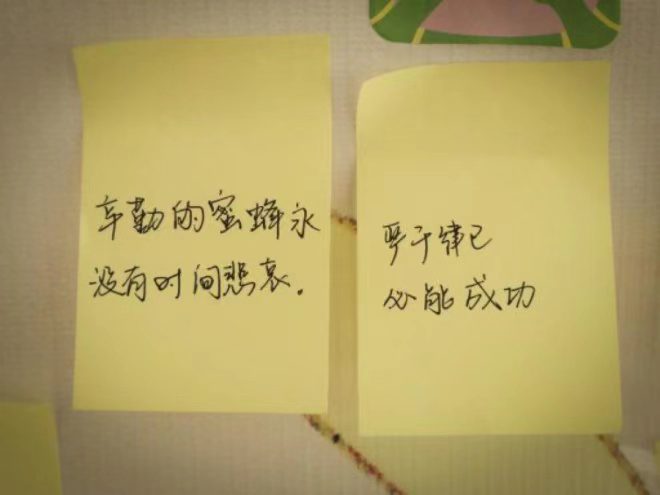 辛勤的蜜蜂永
没有时间悲哀.
严于律己
必能成功